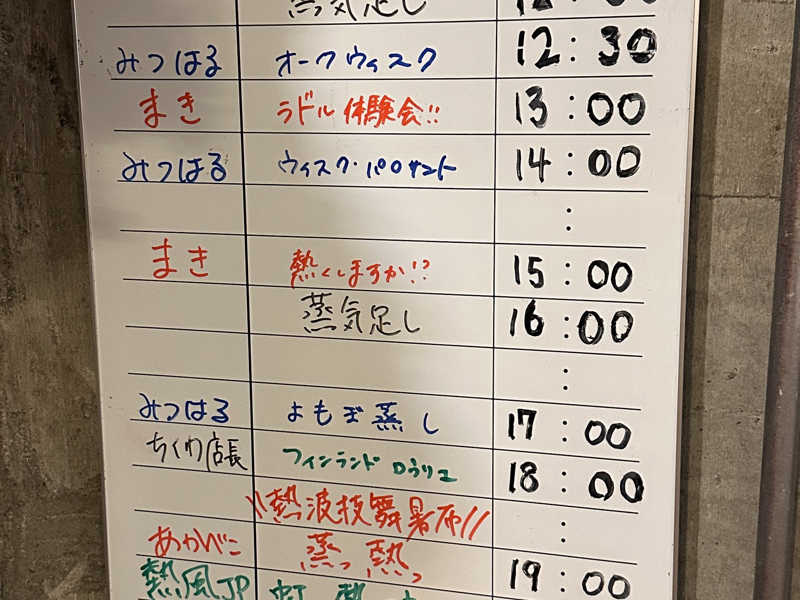 蒸気足し
みつはる オークウィスク 12:30
まき ラドル体験会!! 13:00
みつはる ウィスク・パロサント 14:00
:
まき 熱くしますか!? 15:00
蒸気足し 16:00
:
みつはる よもぎ蒸し 17:00
ちくわ店長 フィンランド ロウリュ 18:00
\\熱波技舞
:
あかべこ 蒸っ熱っ 19:00
熱風JP